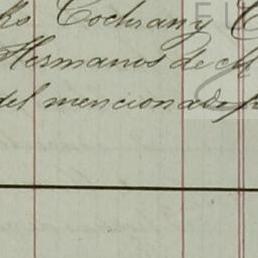 Cochran y C
Hermanos de
del mencionado